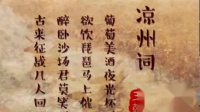 凉州词
葡萄美酒夜光杯
欲饮琵琶马上催
醉卧沙场君莫笑
古来征战几人回